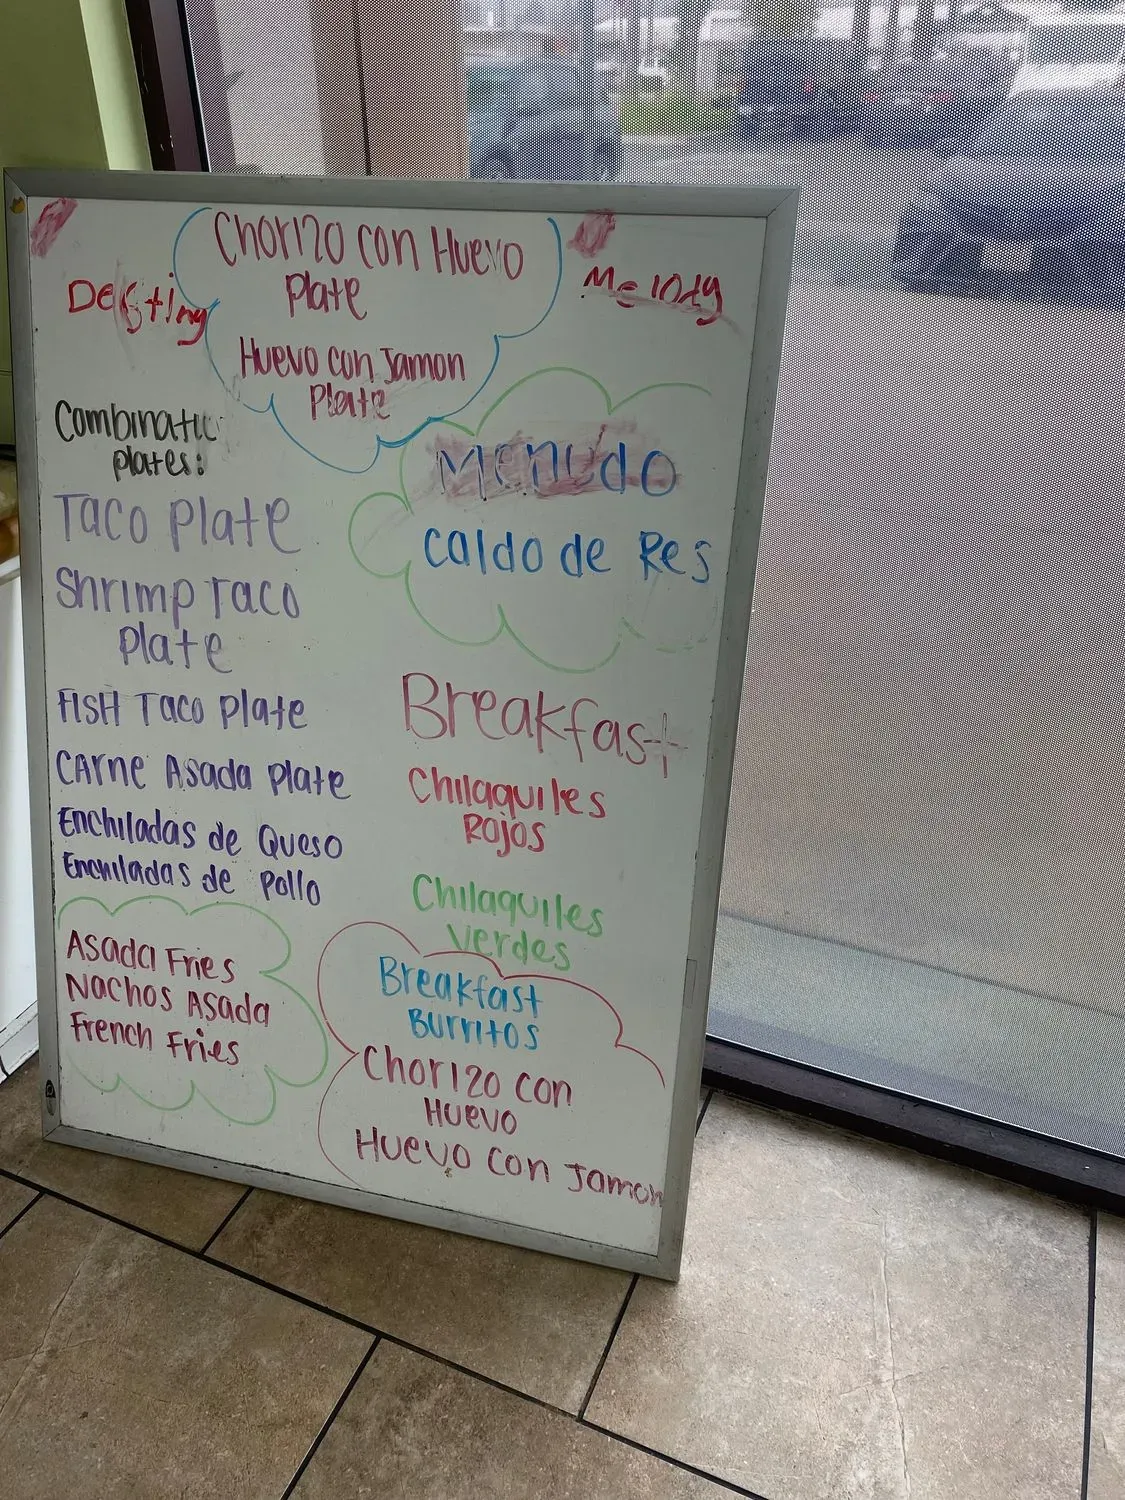 Chorizo con Huevo
Plate
Huevo con Jamon
Plate
Destiny
Melody
Combinatio
plates:
Taco Plate
Shrimp Taco
Plate
FISH Taco Plate
CArne Asada Plate
Enchiladas de Queso
Enchiladas de pollo
Asada Fries
Nachos Asada
French Fries
Menudo
Caldo de Res
Breakfast
Chilaquiles
Rojos
Chilaquiles
Verdes
Breakfast
Burritos
Chorizo con
Huevo
Huevo con Jamon